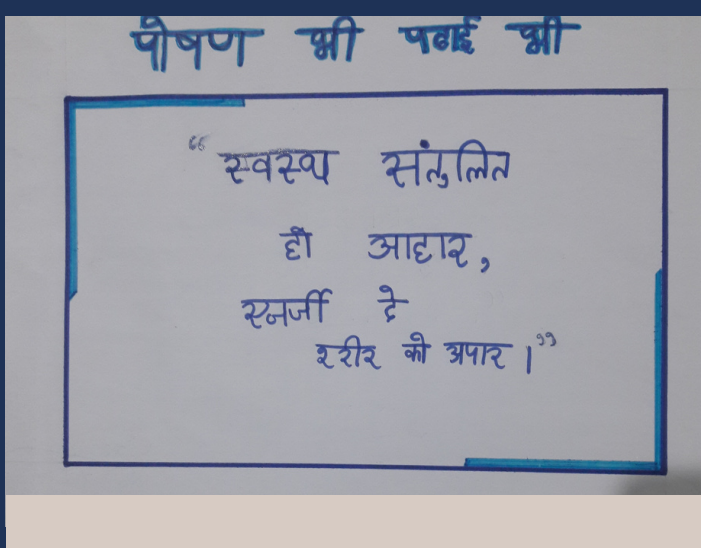 पोषण भी पढाई भी
“स्वस्थ संतुलित
हो आहार,
एनर्जी दे
शरीर को अपार।”